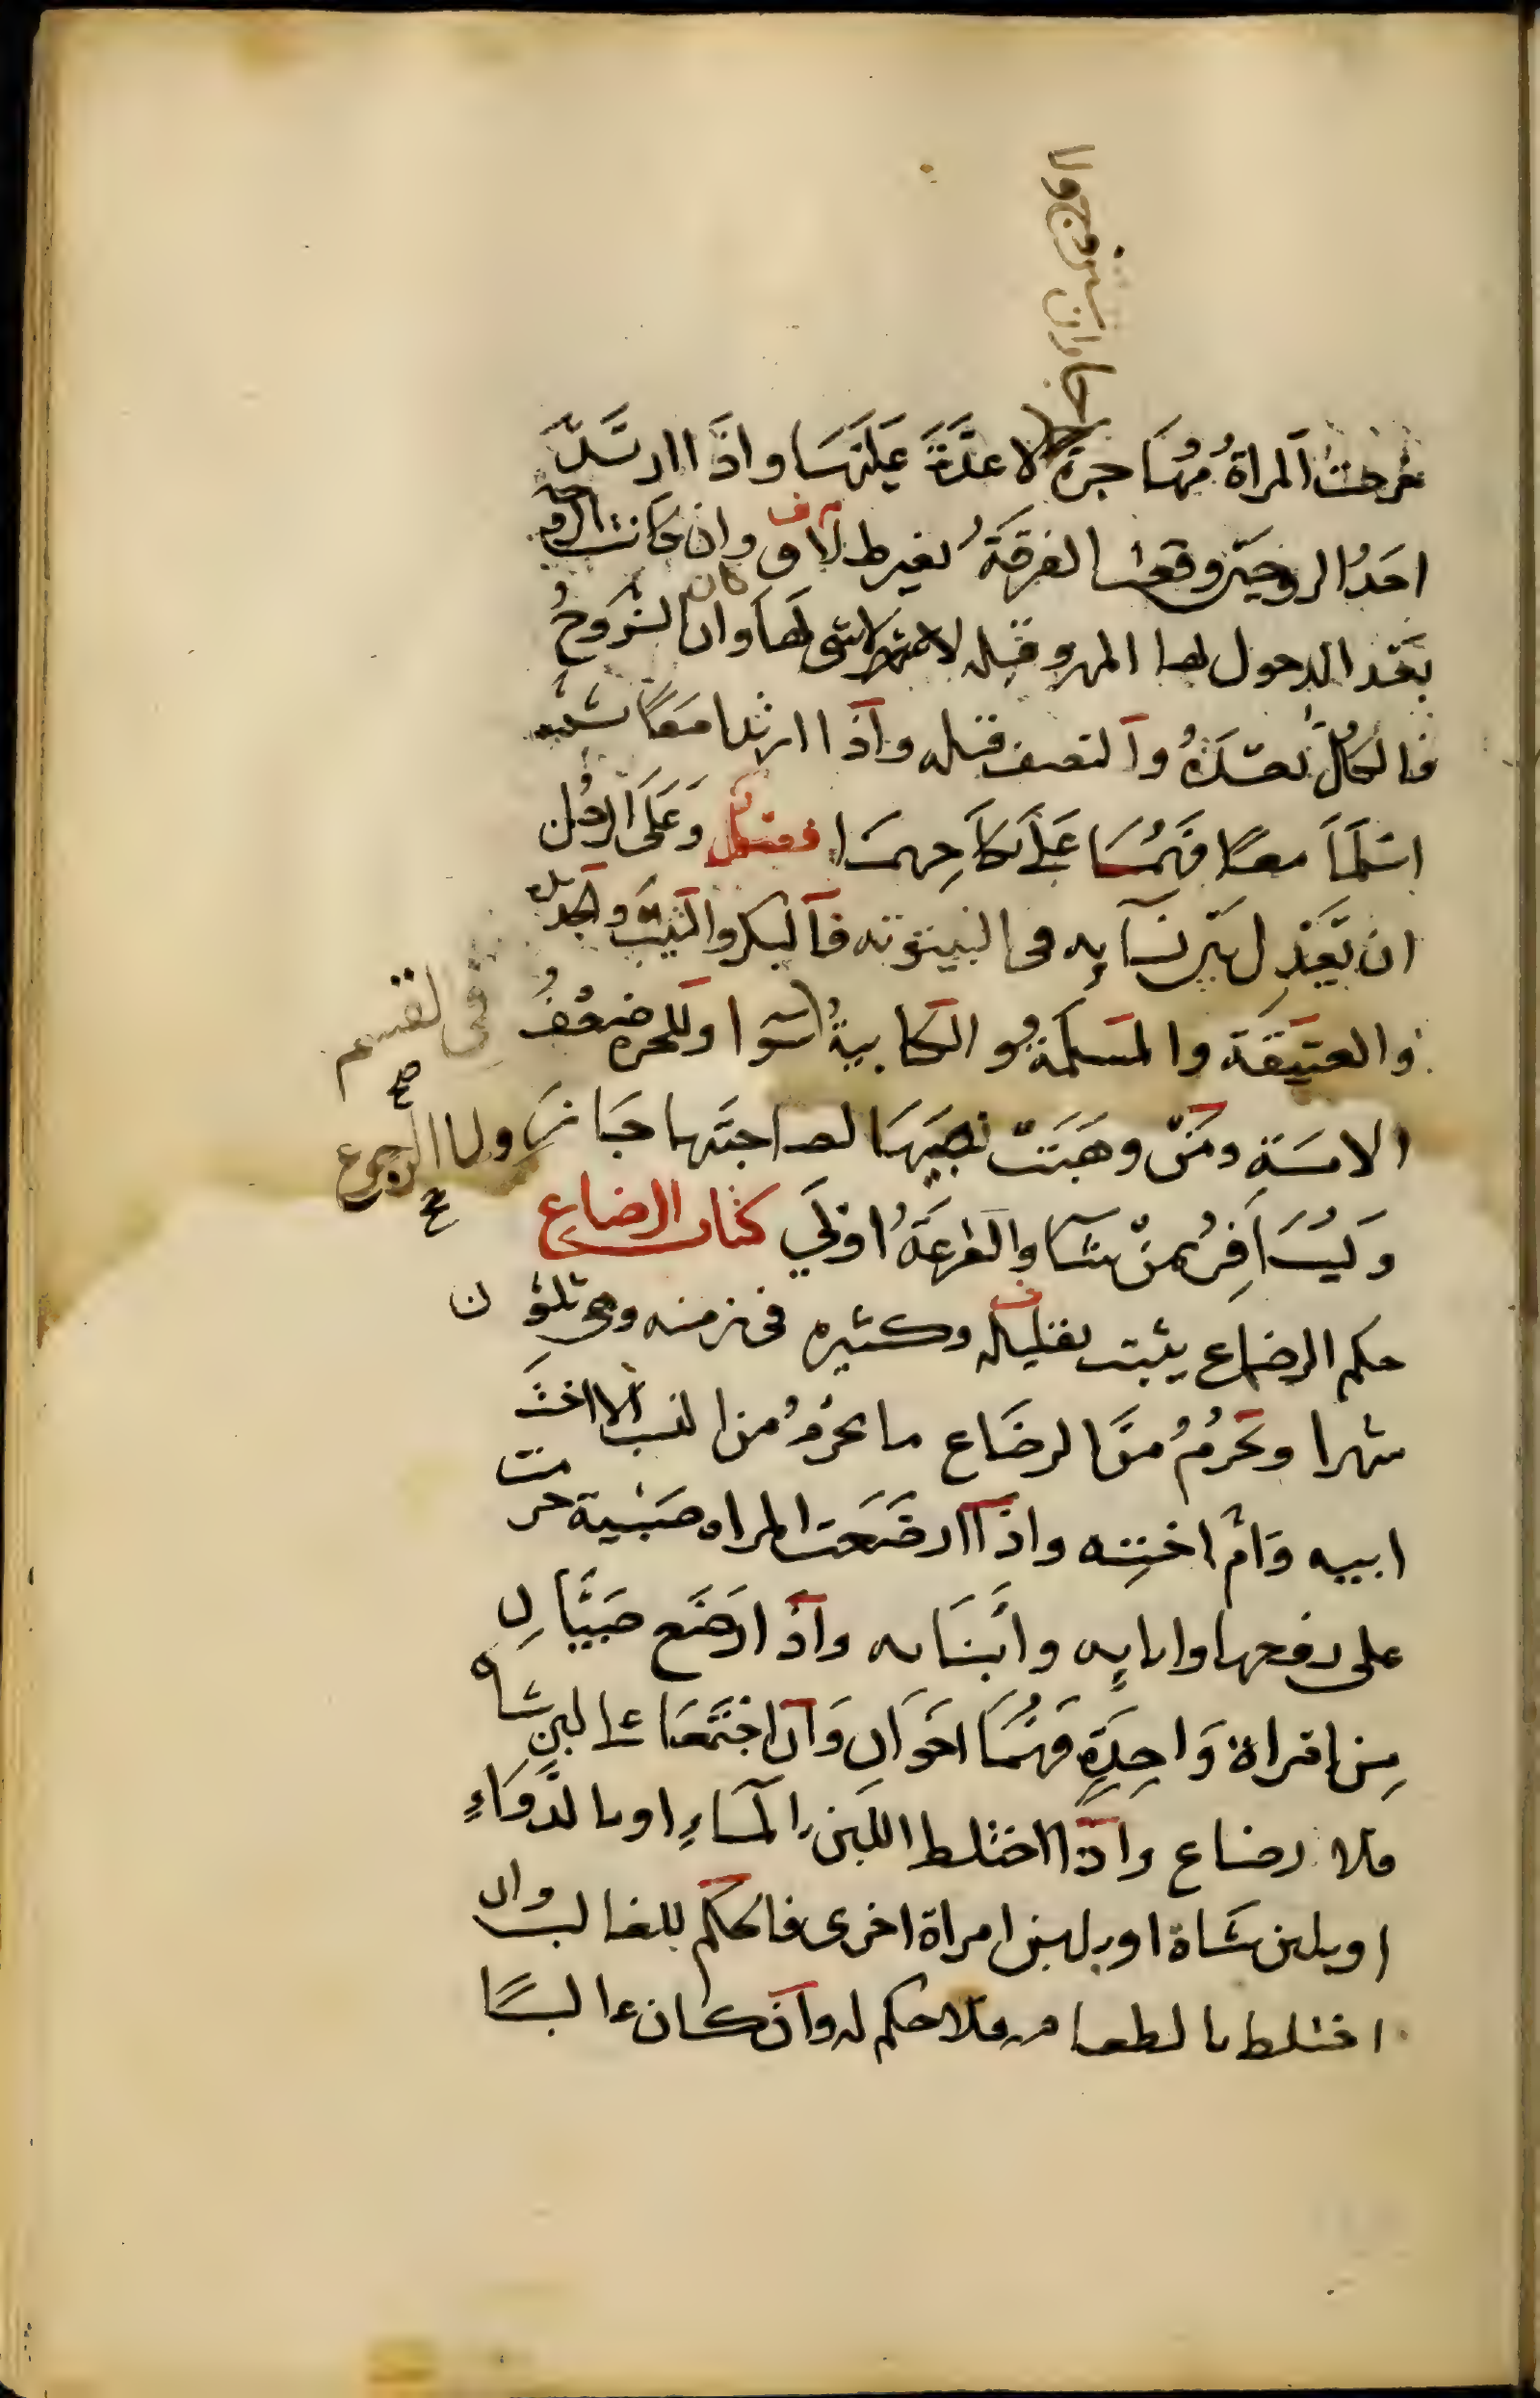 جاز ان تتزوج ولا
خرجت المراة مُهَاجرة لا عدَّةَ عَليهَا واذَا ارتَدّ
احَدُ الزوجين وقعت الفرقَةُ بغير طلاق وان كانت الزوجة
بعْد الدخول لها المهر وقبله لا شى لهَا وان كان الزوجُ
فالكلُّ بعْدَهُ والنصف قبله واذا ارتدا معًا ثم
اسْلَمَا معًا فهُمَا عَلَى نكاحِهمَا فصل وَعَلى الرجُل
ان يَعْدِل بَيْن نسَايِه فى البيتوته فالبكر والثيب والجديدة
والعتيقَة والمسلمةُ والكتابيةُ سَوا وللحره ضعْفُ
الامَة ومَنْ وهَبَتْ نصِيبهَا لصاحبَتها جَاز ولها الرجوع
فى القسم صح
وَيُسَافِرُ بمنْ شَا والقرعَةُ اوْلَي كتاب الرضاع
حكم الرضاع يثبت بقليله وكثيره فى زمنه وهى ثلثون
شهرا ويَحْرُمُ منَ الرضَاع ما يحرُمُ من النسب الا اخْتَ
ابنه وَامَّ اختِه واذا ارضَعَت المراه صَبْية حرمت
على زوجها وابايِه وابْنَايه واذا ارضَع صَبيَّانِ
مِن امراة وَاحِدَةٍ فهُمَا اخَوَانِ وَان اجْتَمَعَا على لبنِ شاه
فلا رضاع واذا اختلط اللبَن بالمَاءِ او بالدَّوَاءِ
او بلبن شَاة او بلبن امراة اخرى فالحكم للغالب وان
اختلط بالطعام فلا حكم له وان كان غالبًا